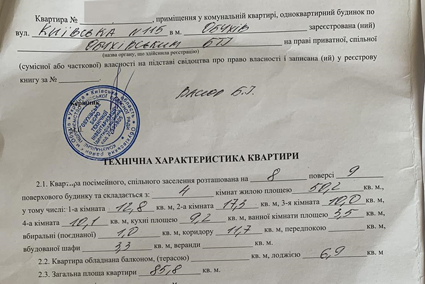 Квартира № , приміщення у комунальній квартирі, одноквартирний будинок по
вул. Київська №115 в м. Обухів зареєстрований (ний)
Обухівським БТІ на праві приватної, спільної
(назва органу, що здійснила реєстрацію)
(сумісної або часткової) власності на підставі свідоцтва про право власності і записана (ний) у реєстрову
книгу за №
Керівник
ТЕХНІЧНА ХАРАКТЕРИСТИКА КВАРТИРИ
2.1. Квартира посімейного, спільного заселення розташована на 8 поверсі 9
поверхового будинку та складається з: 4 кімнат жилою площею 50,2 кв. м.,
у тому числі: 1-а кімната 12,8 кв. м, 2-а кімната 17,3 кв. м, 3-я кімната 10,0 кв. м,
4-а кімната 10,1 кв. м, кухні площею 9,2 кв. м, ванної кімнати площею 3,5 кв. м,
вбиральні (поєднаної) 1,0 кв. м, коридору 11,7 кв. м, передпокою кв. м,
вбудованої шафи 3,3 кв. м, веранди кв. м.
2.2. Квартира обладнана балконом, (терасою) кв. м, лоджією 6,9 кв. м
2.3. Загальна площа квартири 85,8 кв. м.